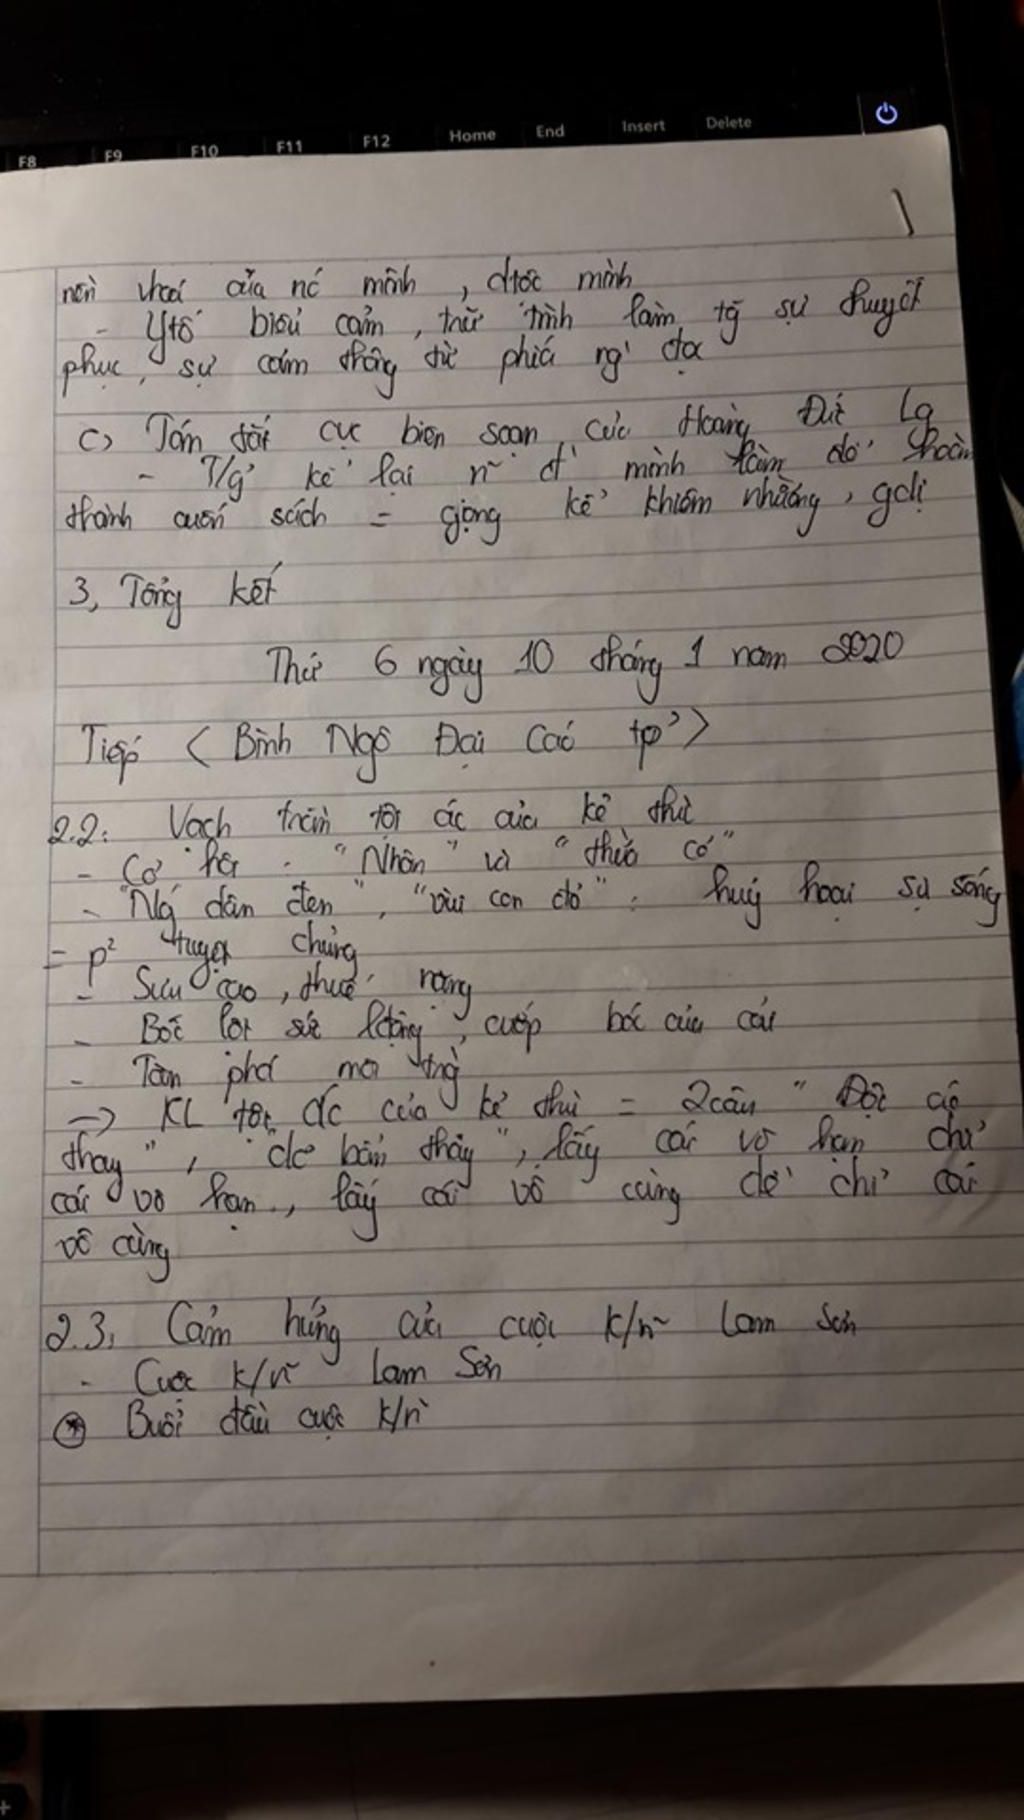 F8 F9 F10 F11 F12 Home End Insert Delete
nền văn của nc mình, dtộc mình
- Ytố biểu cảm, trữ tình làm tg sự thuyết
phục, sự cảm thông từ phía ng' đọc
c) Tóm tắt cực biên soạn của Hoàng Đức Lg
- T/g' kể lại n~ đ' mình làm để hoàn
thành cuốn sách = giọng kể khiêm nhường, gdị
3, Tổng kết
Thứ 6 ngày 10 tháng 1 năm 2020
Tiếp < Bình Ngô Đại Cáo tp' >
2.2: Vạch trần tội ác của kẻ thù
- Cơ hội : "Nhân" và "thừa cơ"
- "Ng dân đen", "vùi con đỏ" : huỷ hoại sự sống
= p² tuyệt chủng
- Sưu cao, thuế nặng
- Bóc lột sức lđộng, cướp bóc của cải
- Tàn phá mọi trg
→ KL tội ác của kẻ thù = 2 câu "Độc ác
thay", "dơ bẩn thay", lấy cái vô hạn chỉ
cái vô hạn, lấy cái vô cùng để chỉ cái
vô cùng
2.3, Cảm hứng của cuộc k/n~ Lam Sơn
- Cuộc k/n~ Lam Sơn
* Buổi đầu cuộc k/n~